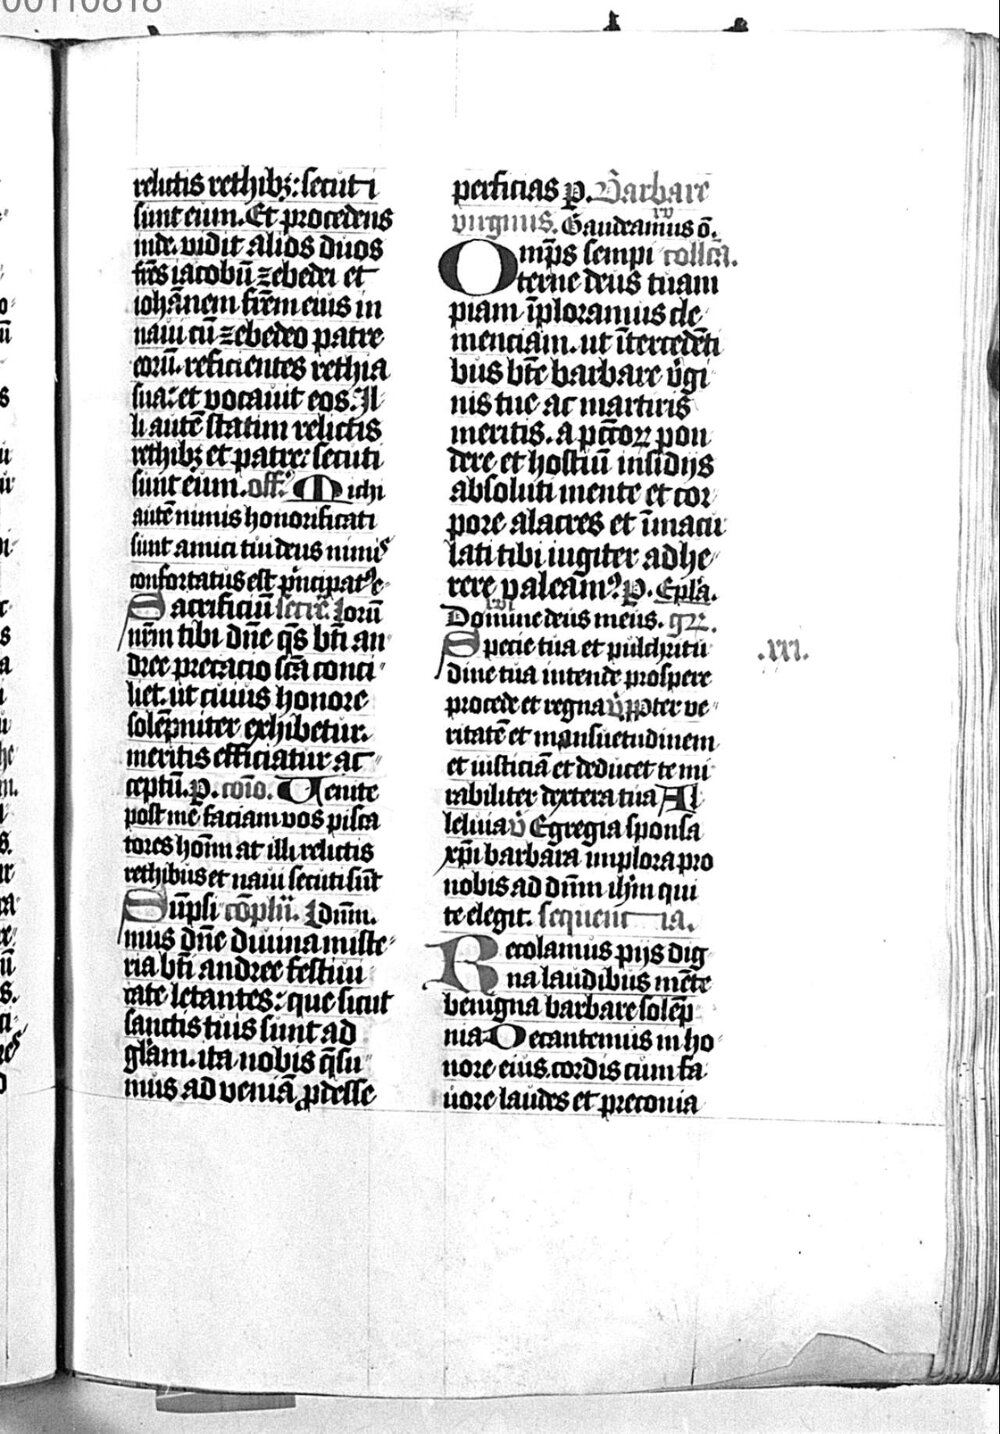 00110818
relictis rethibꝫ: secuti
sunt eum. Et procedens
inde. vidit alios duos
fr̄es iacobū zebedei et
iohānem fr̄em eius in
naui cū zebedeo patre
eorū. reficientes rethia
sua: et vocauit eos. Il
li autē statim relictis
rethibꝫ et patre: secuti
sunt eum. off. Michi
autē nimis honorificati
sunt amici tui deus nimis
confortatus est p̄ncipatꝰ e
Sacrificiū secre. Iorū
nem tibi dn̄e q̄s bt̄i an
dree precacio sc̄a conci
liet. ut cuius honore
solēpniter exhibetur.
meritis efficiatur ac
ceptū. p. cōio. Uenite
post me faciam vos pisca
tores hoīm at illi relictis
rethibus et naui secuti sūt
Sūpsi cōplū. Idnm.
mus dn̄e diuina miste
ria bt̄i andree festiui
tate letantes: que sicut
sanctis tuis sunt ad
gl̄am. ita nobis q̄su
mus ad veniā ꝓdesse
perficias p. Barbare
virginis. Gaudeamus ō.
Omp̄s sempi collcā.
terne deus tuam
piam īploramus cle
menciam. ut ītercedēti
bus bt̄e barbare v̄gi
nis tue ac martiris
meritis. a pctōꝝ pon
dere et hostiū insidijs
absoluti mente et cor
pore alacres et īmacu
lati tibi iugiter adhe
rere valeamꝰ. P. Epl̄a.
Domine deus meus. gꝝ.
Specie tua et pulchritu
.xxi.
dine tua intende prospere
procede et regna v̄ ꝓpter ve
ritatē et mansuetudinem
et iusticiā et deducet te mi
rabiliter dextera tua Al
leluia v̄ Egregia sponsa
xp̄i barbara implora pro
nobis ad dn̄m ihm̄ qui
te elegit. sequentia.
Recolamus pijs dig
na laudibus mēte
benigna barbare solēp
nia Decantemus in ho
nore eius. cordis cum fa
uore laudes et preconia